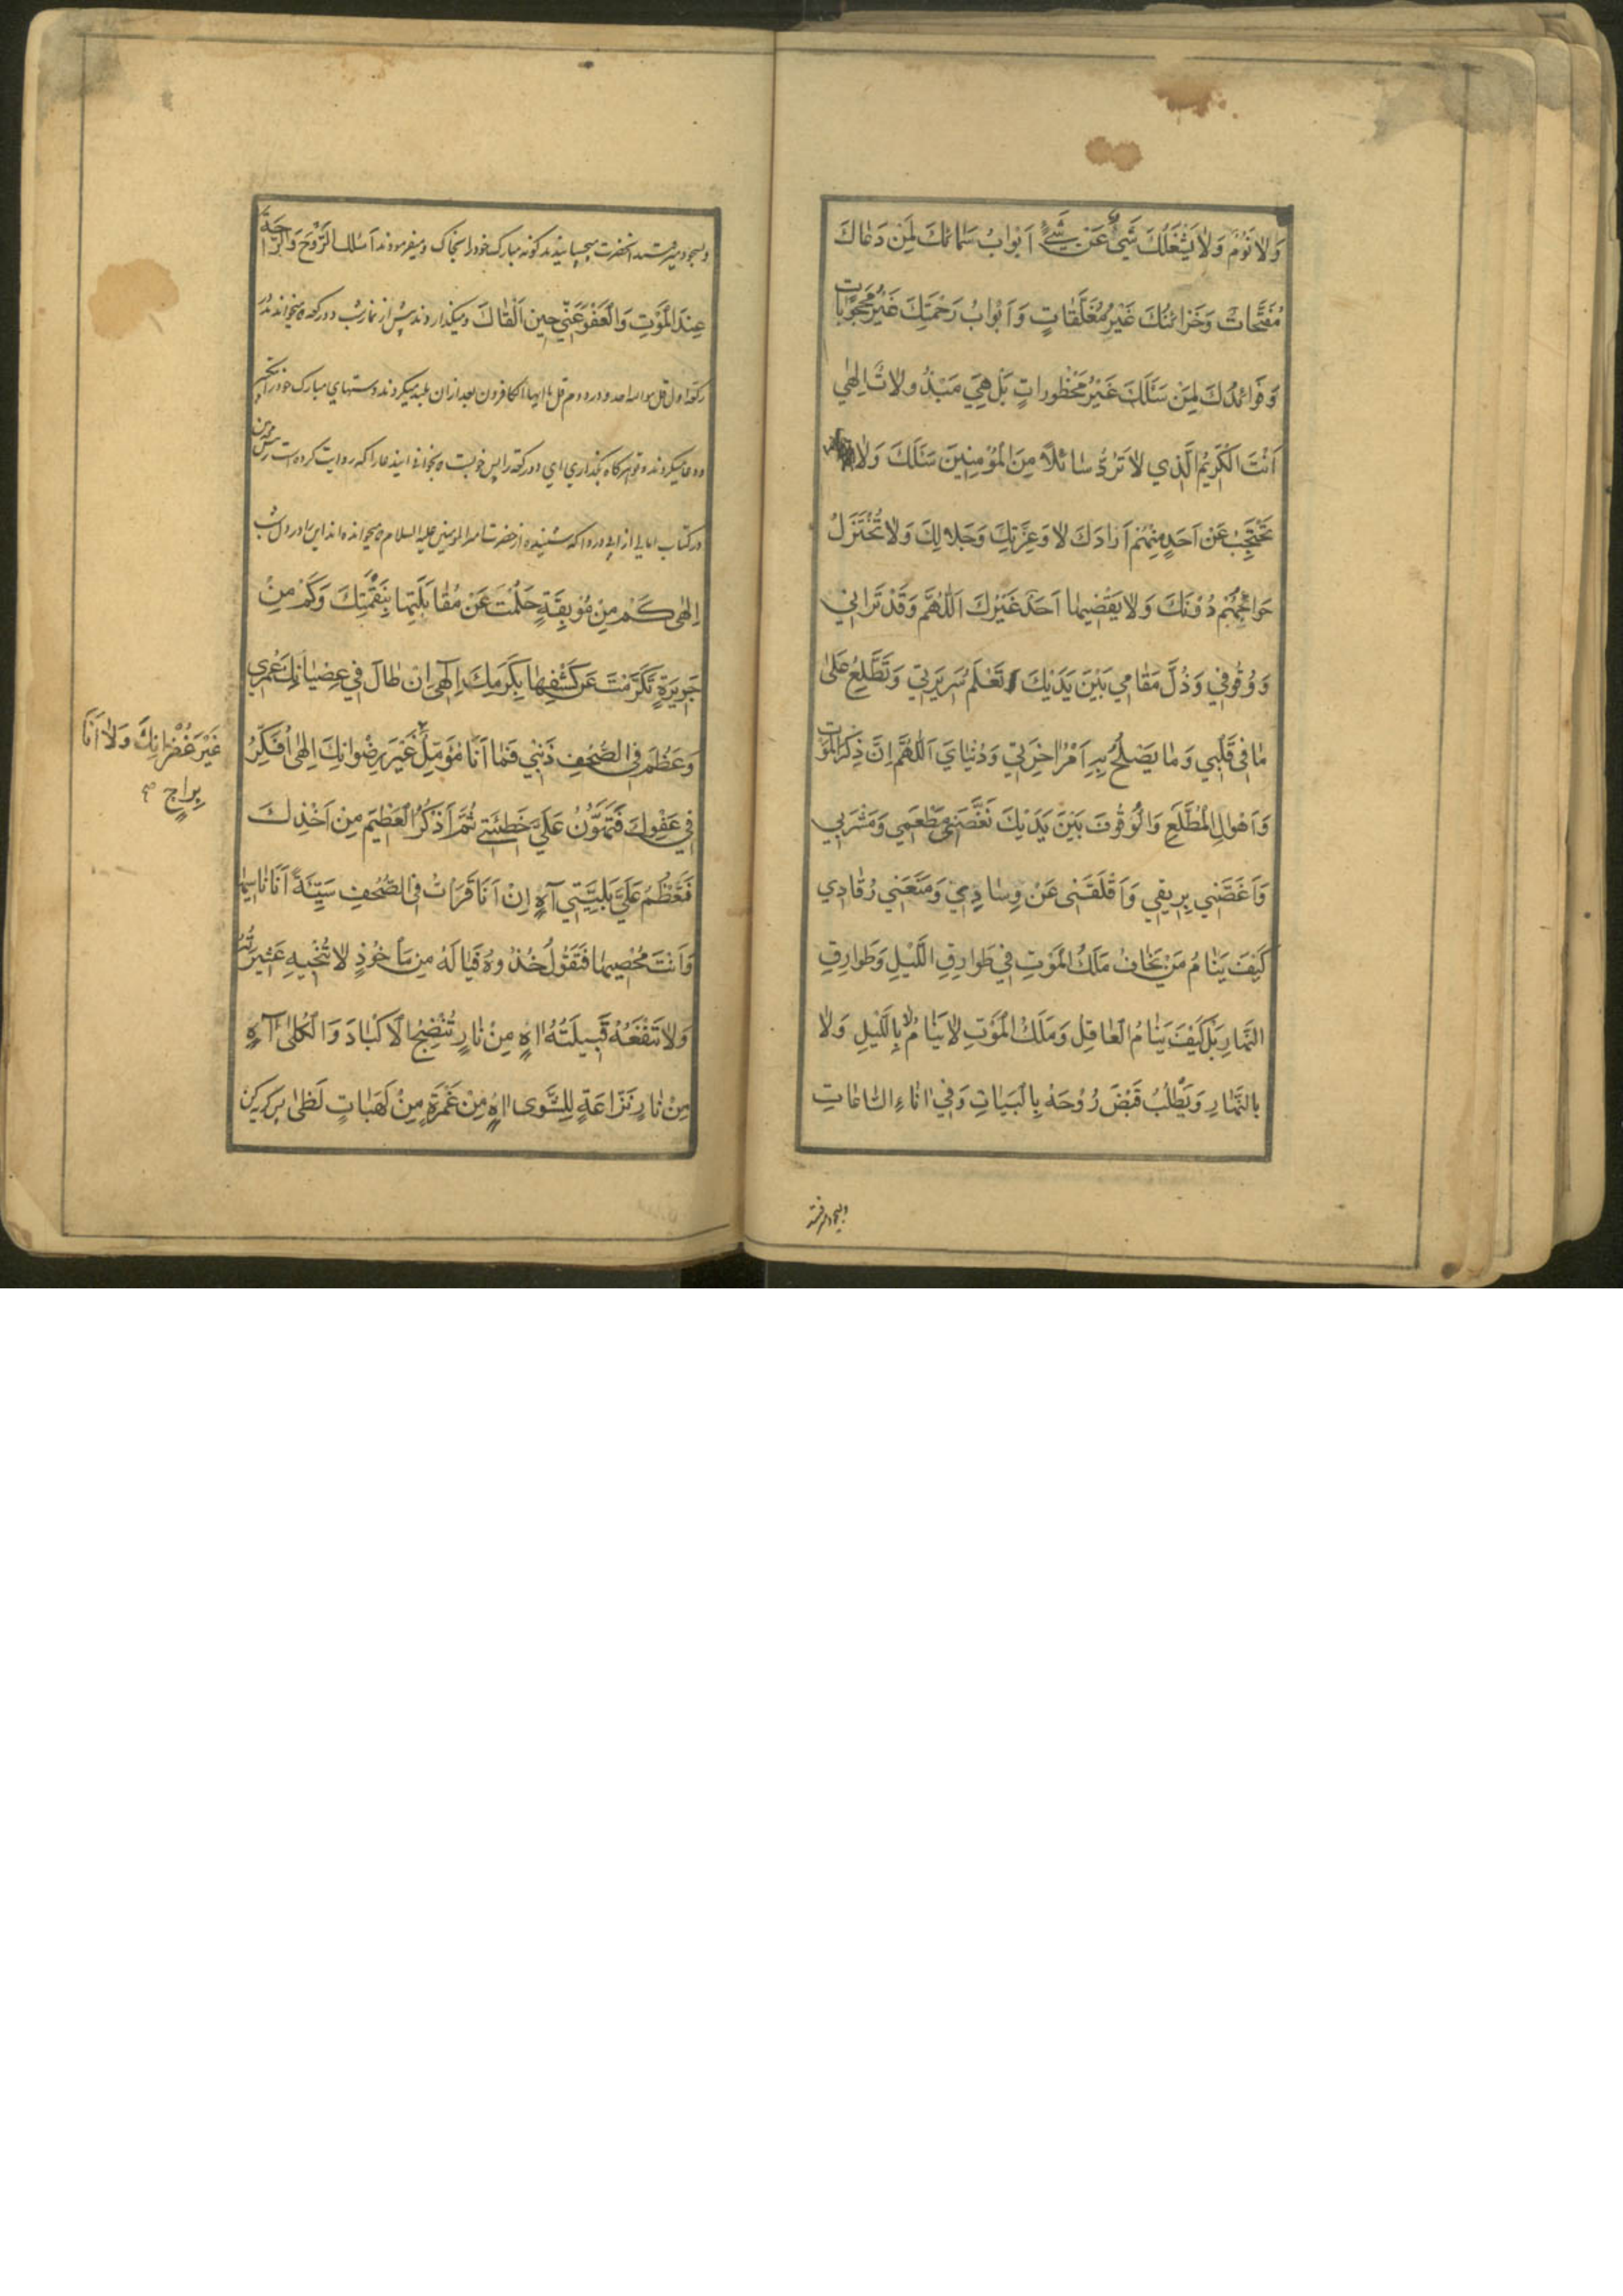 وَلاٰ نَوْمٌ وَلاٰ يَشْغَلُكَ شَيْءٌ عَنْ شَيْءٍ اَبْوٰابُ سَمٰائِكَ لِمَنْ دَعٰاكَ
مُفَتَّحٰاتٌ وَخَزٰائِنُكَ غَيْرُ مُغَلَّقٰاتٍ وَاَبْوٰابُ رَحْمَتِكَ غَيْرُ مَحْجُوبٰاتٍ
وَفَوٰائِدُكَ لِمَنْ سَئَلَكَ غَيْرُ مَحْظُورٰاتٍ بَلْ هِيَ مَبْذُولاٰتٌ اِلٰهِي
اَنْتَ الْكَرِيْمُ الَّذِي لاٰ تَرُدُّ سٰائِلاً مِنَ الْمُؤْمِنِينَ سَئَلَكَ وَلاٰ
تَحْتَجِبُ عَنْ اَحَدٍ مِنْهُمْ اَرٰادَكَ لاٰ وَعِزَّتِكَ وَجَلاٰلِكَ وَلاٰ تُخْتَزَلُ
حَوٰائِجُهُمْ دُوْنَكَ وَلاٰ يَقْضِيهٰا اَحَدٌ غَيْرُكَ اَللّٰهُمَّ وَقَدْ تَرٰانِي
وَوُقُوفِي وَذُلَّ مَقٰامِي بَيْنَ يَدَيْكَ تَعْلَمُ سَرِيرَتِي وَتَطَّلِعُ عَلىٰ
مٰا فِي قَلْبِي وَمٰا يَصْلُحُ بِهِ اَمْرُ اٰخِرَتِي وَدُنْيٰايَ اَللّٰهُمَّ اِنَّ ذِكْرَ الْمَوْتِ
وَاَهْوٰالِ الْمُطَّلَعِ وَالْوُقُوفَ بَيْنَ يَدَيْكَ نَغَّصَنِي مَطْعَمِي وَمَشْرَبِي
وَاَغَصَّنِي بِرِيقِي وَاَقْلَقَنِي عَنْ وِسٰادِي وَمَنَعَنِي رُقٰادِي
كَيْفَ يَنٰامُ مَنْ يَخٰافُ مَلَكُ الْمَوْتِ فِي طَوٰارِقِ اللَّيْلِ وَطَوٰارِقِ
النَّهٰارِ بَلْ كَيْفَ يَنٰامُ الْعٰاقِلُ وَمَلَكُ الْمَوْتِ لاٰ يَنٰامُ لاٰ بِاللَّيْلِ وَلاٰ
بِالنَّهٰارِ وَيَطْلُبُ قَبْضَ رُوْحَهُ بِالْبَيٰاتِ وَفِي اٰنٰاءِ السّٰاعٰاتِ
وبسجود میرفتند
وبسجود میرفتند انحضرت میچسپانیدند کونه مبارک خودرا بخاک ومیفرمودند اَسْئَلُكَ الرَّوْحَ وَالرّٰاحَةَ
عِنْدَ الْمَوْتِ وَالْعَفْوَ عَنِّي حِينَ اَلْقٰاكَ ومیکذاردند پیش از نماز شب دورکعة میخواندند در
رکعة اول قل هو الله احد ودر دوم قل یا ایها الکافرون بعد ازان بلند میکردند دستهای مبارک خودرا
ودعا میکردند وتو هرکاه بکذاری این دورکعة را پس خوبست بخوانی ایندعارا که روایت کرده است
در کتاب امالی از ابی دردا که شنیده از حضرت امیر المؤمنین علیه السلام میخوانده اند این را در دل شب
اِلٰهِي كَمْ مِنْ مُوْبِقَةٍ حَلُمْتَ عَنْ مُقٰابَلَتِهٰا بِنَقْمَتِكَ وَكَمْ مِنْ
جَرِيرَةٍ تَكَرَّمْتَ عَنْ كَشْفِهٰا بِكَرَمِكَ اِلٰهِي اِنْ طٰالَ فِي عِصْيٰانِكَ عُمْرِي
وَعَظُمَ فِي الصُّحُفِ ذَنْبِي فَمٰا اَنَا مُؤَمِّلٌ غَيْرَ رِضْوٰانِكَ اِلٰهِي اُفَكِّرُ
غَيْرَ غُفْرٰانِكَ وَلاٰ اَنَا
بِرٰاجٍ
فِي عَفْوِكَ فَتَهُوْنُ عَلَيَّ خَطِيئَتِي ثُمَّ اَذْكُرُ الْعَظِيمَ مِنْ اَخْذِكَ
فَتَعْظُمُ عَلَيَّ بَلِيَّتِي آهٍ اِنْ اَنَا قَرَأْتُ فِي الصُّحُفِ سَيِّئَةً اَنَا نٰاسِيهٰا
وَاَنْتَ مُحْصِيهٰا فَتَقُولُ خُذُوهُ فَيٰا لَهُ مِنْ مَأْخُوذٍ لاٰ تُنْجِيهِ عَشِيرَتُهُ
وَلاٰ تَنْفَعُهُ قَبِيلَتُهُ اٰهٍ مِنْ نٰارٍ تُنْضِجُ الْاَكْبٰادَ وَالْكُلىٰ آهٍ
مِنْ نٰارٍ نَزّٰاعَةٍ لِلشَّوىٰ اٰهٍ مِنْ غَمْرَةٍ مِنْ لَهَبٰاتٍ لَظىٰ